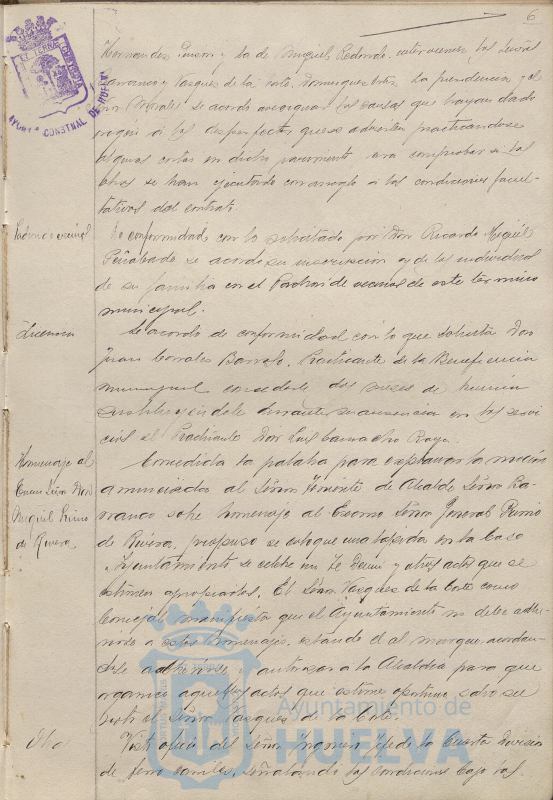 6
AYUNT. CONSTNAL DE HUELVA
Hernandez Pinzon y Sra de Miguel Redondo, intervienen los Señores
y Vazquez de la Corte, Dominguez Ortiz. La presidencia y el
Sr. Morales se acordó averiguar las causas que hayan dado
origen á los desperfectos que se advierten practicandose
algunas catas en dicho pavimento para comprobar si las
obras se han ejecutado con arreglo á las condiciones facul-
tativas del contrato.
Padron de vecinos
De conformidad con lo solicitado por Don Ricardo Miguel
Peñalbade se acordó su inscripcion y de los individuos
de su familia en el Padron de vecinos de este termino
municipal.
Licencia
Se acordó de conformidad con lo que solicita Don
Juan Corrales Barrafo, Practicante de la Beneficencia
municipal concederle dos meses de licencia
sustituyendole durante su ausencia en los servi-
cios el Practicante Don Luis Camacho Raya.
Homenaje al
Excmo Señor Don
Miguel Primo
de Rivera
Concedida la palabra para explanar la mocion
anunciada al Señor Teniente de Alcalde Señor Ca-
rranco sobre homenaje al Excmo Señor General Primo
de Rivera, propuso se coloque una lapida en la Casa
Ayuntamiento se celebre un Te Deum y otros actos que se
estimen apropiados. El Señor Vazquez de la Corte como
Concejal manifiesta que el Ayuntamiento no debe adhe-
rirse a estos homenajes, estando él al margen acordan-
dose adherirse y autorizar á la Alcaldia para que
organice aquellos actos que estime oportuno, salvo su
voto el Señor Vazquez de la Corte.
Visto oficio del Señor Ingeniero Jefe de la Cuarta Division
de ferro carriles, señalando las condiciones bajo las
Ayuntamiento de
HUELVA